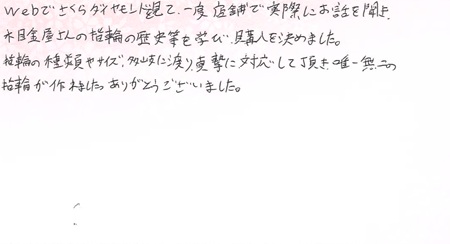 Webでさくらダイヤモンドを見て、一度店舗で実際にお話を聞き、
木目金屋さんの指輪の歴史等を学び、購入を決めました。
指輪の種類やサイズ、多岐に渡り、真摯に対応して頂き、唯一無二の
指輪が作れました。ありがとうございました。